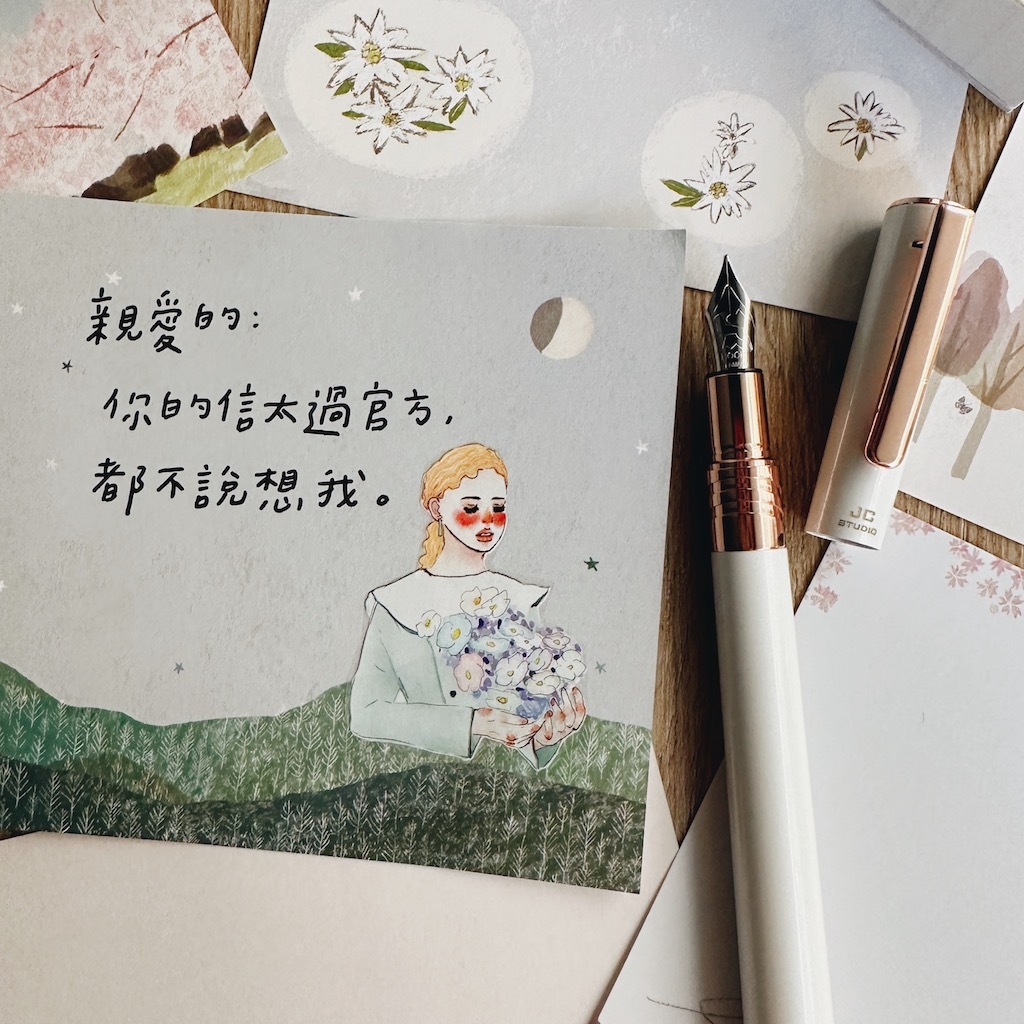 親愛的：
你的信太過官方，
都不說想我。
JC
STUDIO